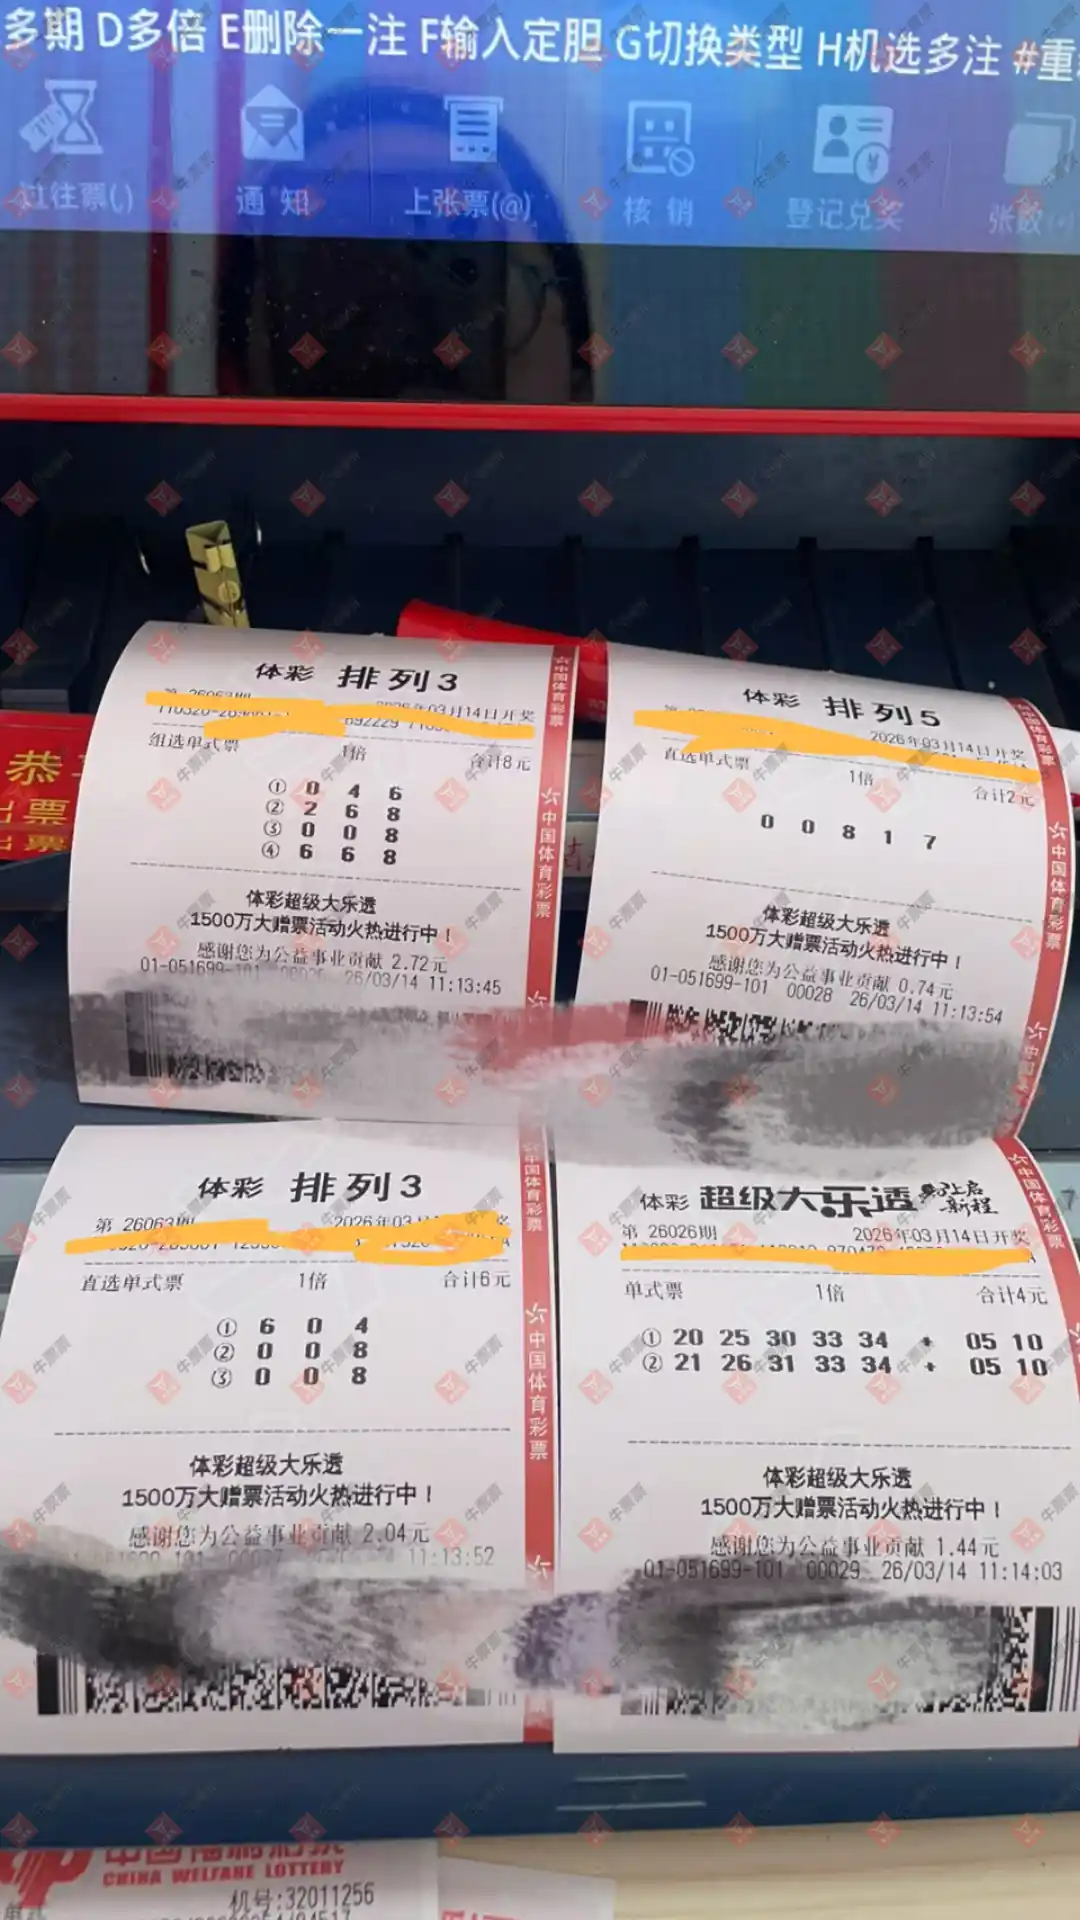 多期 D多倍 E删除一注 F输入定胆 G切换类型 H机选多注 #重
过往票(,)
通知
上张票(@)
核销
登记兑奖
张数
恭
出票
出票
体彩 排列3
2026年03月14日开奖
组选单式票 1倍 合计8元
① 0 4 6
② 2 6 8
③ 0 0 8
④ 6 6 8
体彩超级大乐透
1500万大赠票活动火热进行中!
感谢您为公益事业贡献 2.72元
01-051699-101 00026 26/03/14 11:13:45
中国体育彩票
体彩 排列5
2026年03月14日开奖
直选单式票 1倍 合计2元
0 0 8 1 7
体彩超级大乐透
1500万大赠票活动火热进行中!
感谢您为公益事业贡献 0.74元
01-051699-101 00028 26/03/14 11:13:54
中国体育彩票
体彩 排列3
第 26063期 2026年03月
直选单式票 1倍 合计6元
① 6 0 4
② 0 0 8
③ 0 0 8
体彩超级大乐透
1500万大赠票活动火热进行中!
感谢您为公益事业贡献 2.04元
11:13:52
中国体育彩票
体彩 超级大乐透 马上启新程
第 26026期 2026年03月14日开奖
单式票 1倍 合计4元
① 20 25 30 33 34 + 05 10
② 21 26 31 33 34 + 05 10
体彩超级大乐透
1500万大赠票活动火热进行中!
感谢您为公益事业贡献 1.44元
01-051699-101 00029 26/03/14 11:14:03
中国体育彩票
CHINA WELFARE LOTTERY
机号:32011256
牛票票